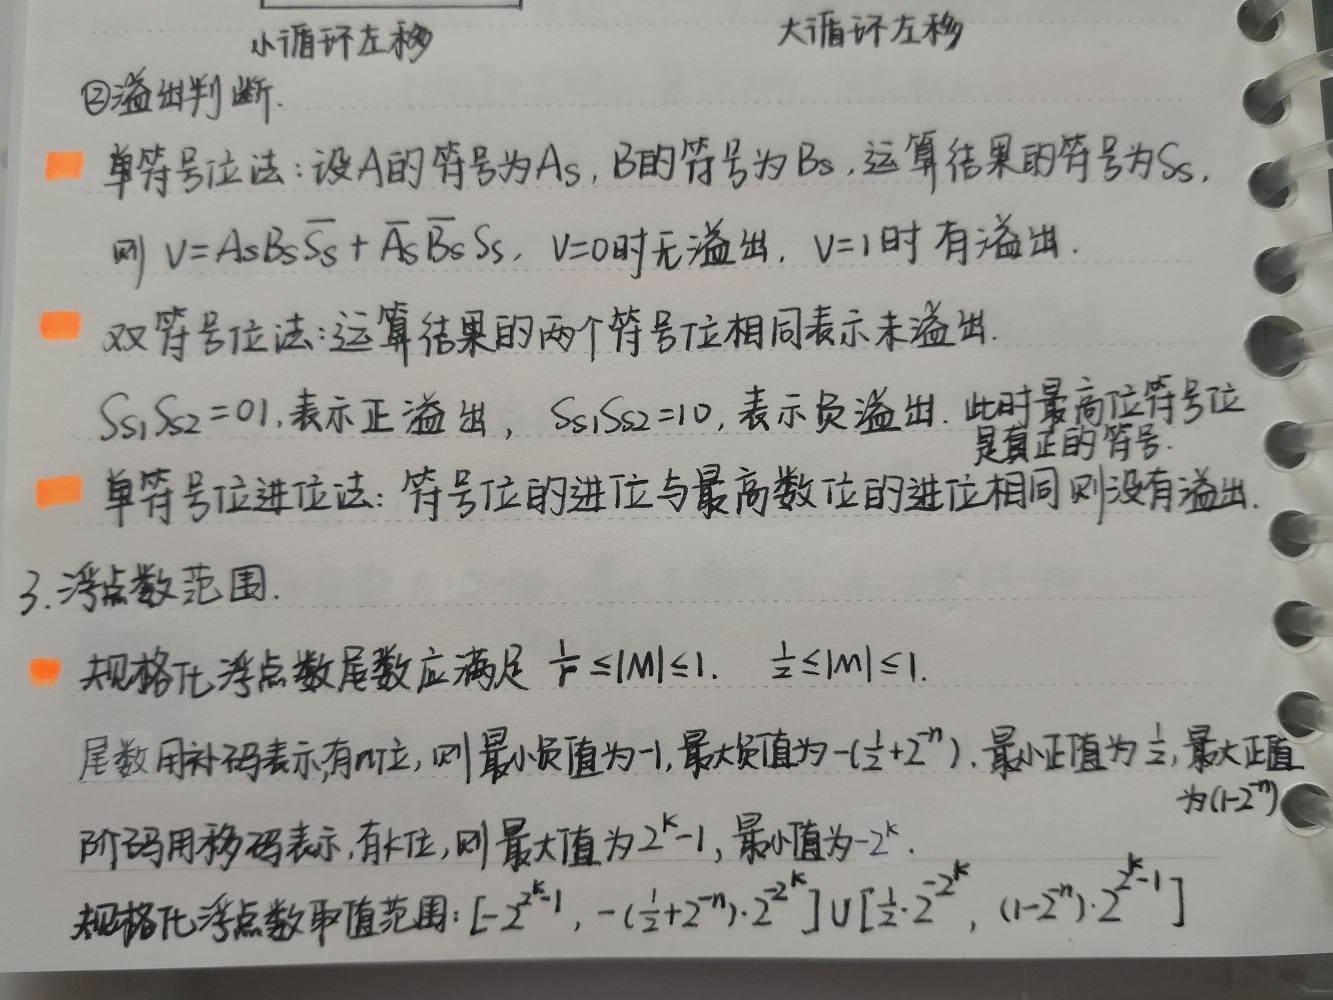 小循环左移 大循环左移
②溢出判断.
单符号位法:设A的符号为As, B的符号为Bs,运算结果的符号为Ss,
则 V=AsBsS̅s+A̅sB̅sSs, V=0时无溢出, V=1时有溢出.
双符号位法:运算结果的两个符号位相同表示未溢出.
Ss₁Ss2=01,表示正溢出, Ss₁Ss2=10,表示负溢出. 此时最高位符号位
是真正的符号.
单符号位进位法:符号位的进位与最高数位的进位相同则没有溢出.
3.浮点数范围.
规格化浮点数尾数应满足 1/r≤|M|≤1. 1/2≤|M|≤1.
尾数用补码表示,有n位,则最小负值为-1,最大负值为-(1/2+2⁻ⁿ).最小正值为1/2,最大正值
为(1-2⁻ⁿ)
阶码用移码表示,有k位,则最大值为2ᵏ-1,最小值为-2ᵏ.
规格化浮点数取值范围:[-2^(2^k-1), -(1/2+2⁻ⁿ)·2^(-2^k)]∪[1/2·2^(-2^k), (1-2⁻ⁿ)·2^(2^k-1)]